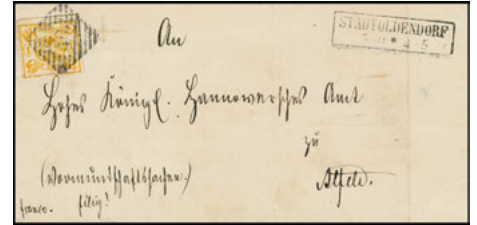 An
STADTOLDENDORF
Hohes Königl. Hannoversches Amt
zu
Alfeld.
(Vormundschaftssachen)
franco. Eilig!